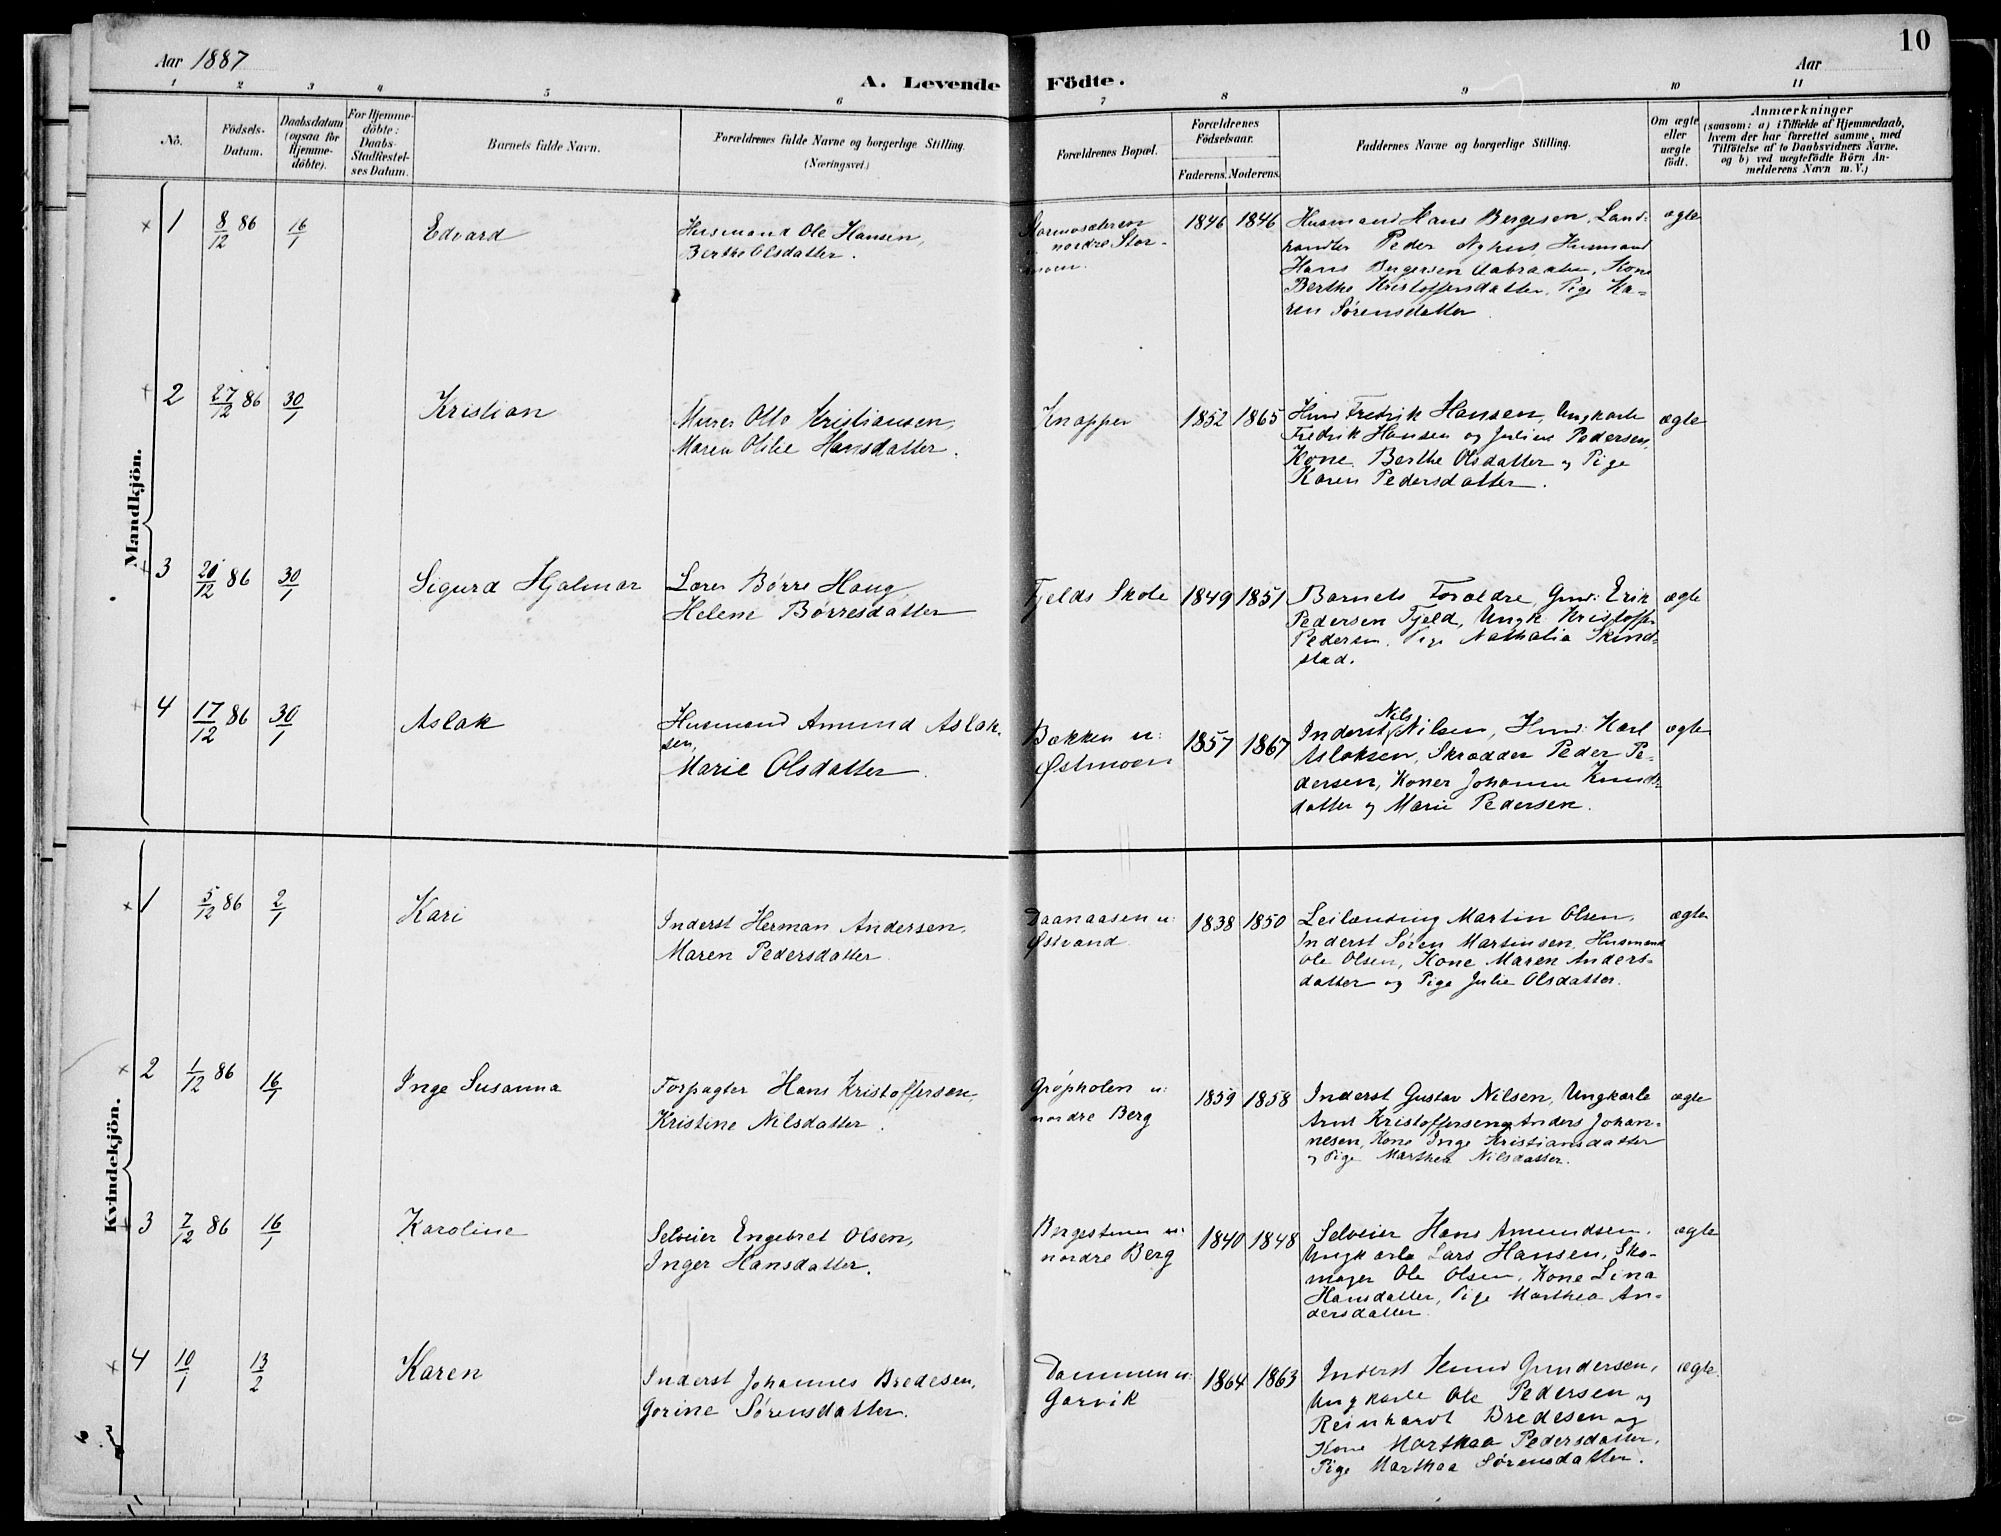 Aar 1887
A. Levende Födte.
Aar
10
1 2 3 4 5 6 7 8 9 10 11
No.
Födsels-
Datum.
Daabsdatum
(ogsaa for
Hjemme-
döbte).
For Hjemme-
döbte:
Daabs-
Stadfæstel-
ses Datum.
Barnets fulde Navn.
Forældrenes fulde Navne og borgerlige Stilling.
(Næringsvei.)
Forældrenes Bopæl.
Forældrenes
Födselsaar.
Faderens. Moderens.
Faddernes Navne og borgerlige Stilling.
Om ægte
eller
uægte
født.
Anmærkninger
(saasom: a) i Tilfælde af Hjemmedaab,
hvem der har forrettet samme, med
Tilföielse af to Daabsvidners Navne.
og b) ved uægtefödte Börn An-
melderens Navn m. V.)
Mandkjön.
1
8/12 86
16/1
Edvard
Husmand Ole Hansen,
Berthe Olsdatter.
nordre Stor-
moen.
1846
1846
Husmand Hans Bergesen, Land-
handler Peder Nyhus, Husmand
Hans Bergersen Aabraaten, Kone
Berthe Kristoffersdatter, Pige Ka-
ren Sørensdatter
ægte
2
27/12 86
30/1
Kristian
Murer Otto Kristiansen,
Maren Otilie Hansdatter.
Knapper
1852
1865
Hmd Fredrik Hansen, Ungkarle
Fredrik Hansen og Julius Pedersen,
Kone Berthe Olsdatter og Pige
Karen Pedersdatter.
ægte
3
20/12 86
30/1
Sigurd Hjalmar
Lærer Børre Haug,
Helene Børresdatter
Fjelds Skole
1849
1851
Barnets Forældre, Gmd: Erik
Pedersen Fjeld, Ungk Kristoffer
Pedersen, Pige Nathalia Skind-
stad.
ægte
4
17/12 86
30/1
Aslak
Husmand Amund Aslak-
sen,
Marie Olsdatter.
Bakken u:
Østmoen
1857
1867
Nils
Inderst Nilsen, Hmd: Karl
Aslaksen, Skrædder Peder Pe-
dersen, Koner Johanne Knuds-
datter og Marie Pedersen.
ægte
Kvindekjön.
1
5/12 86
2/1
Kari
Inderst Herman Andersen,
Maren Pedersdatter
Daanaasen u:
Østvand
1838
1850
Leilænding Martin Olsen,
Inderst Søren Martinsen, Husmand
Ole Olsen, Kone Maren Anders-
datter og Pige Julie Olsdatter.
ægte
2
1/12 86
16/1
Inge Susanna
Forpagter Hans Kristoffersen,
Kristine Nilsdatter.
Grøpholen u:
nordre Berg
1859
1858
Inderst Gustav Nilsen, Ungkarle
Arnt Kristoffersen og Anders Johan-
nesen, Kone Inge Kristiansdatter
og Pige Marthea Nilsdatter.
ægte
3
7/12 86
16/1
Karoline
Selveier Engebret Olsen,
Inger Hansdatter.
Bergestuen u:
nordre Berg
1840
1848
Selveier Hans Amundsen,
Ungkarle Lars Hansen, Sko-
mager Ole Olsen, Kone Lina
Hansdatter, Pige Marthea An-
dersdatter.
ægte
4
10/1
13/2
Karen
Inderst Johannes Bredesen,
Gorine Sørensdatter.
Dammen u:
Garvik
1864
1863
Inderst Knud Gundersen,
Ungkarle Ole Pedersen og
Reinhardt Bredesen og
Kone Marthea Pedersdatter,
Pige Marthea Sørensdatter.
ægte